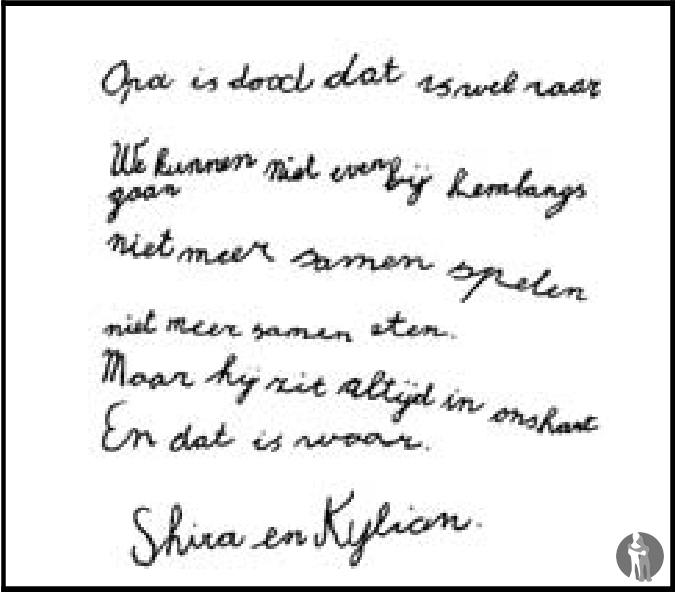 Opa is dood dat is wel raar
We kunnen niet even bij hem langs
gaan
niet meer samen spelen
niet meer samen eten.
Maar hij zit altijd in ons hart
En dat is waar.
Shira en Kylian.